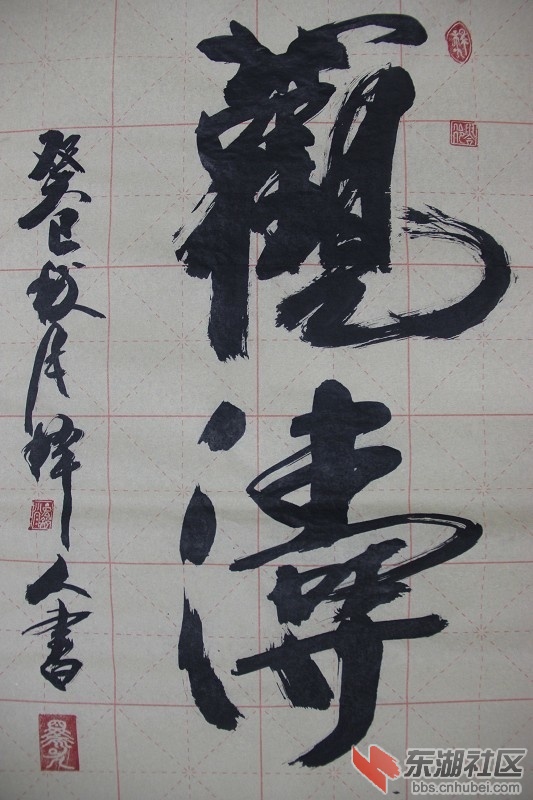 觀濤
癸巳秋月峰人書
东湖社区
bbs.cnhubei.com